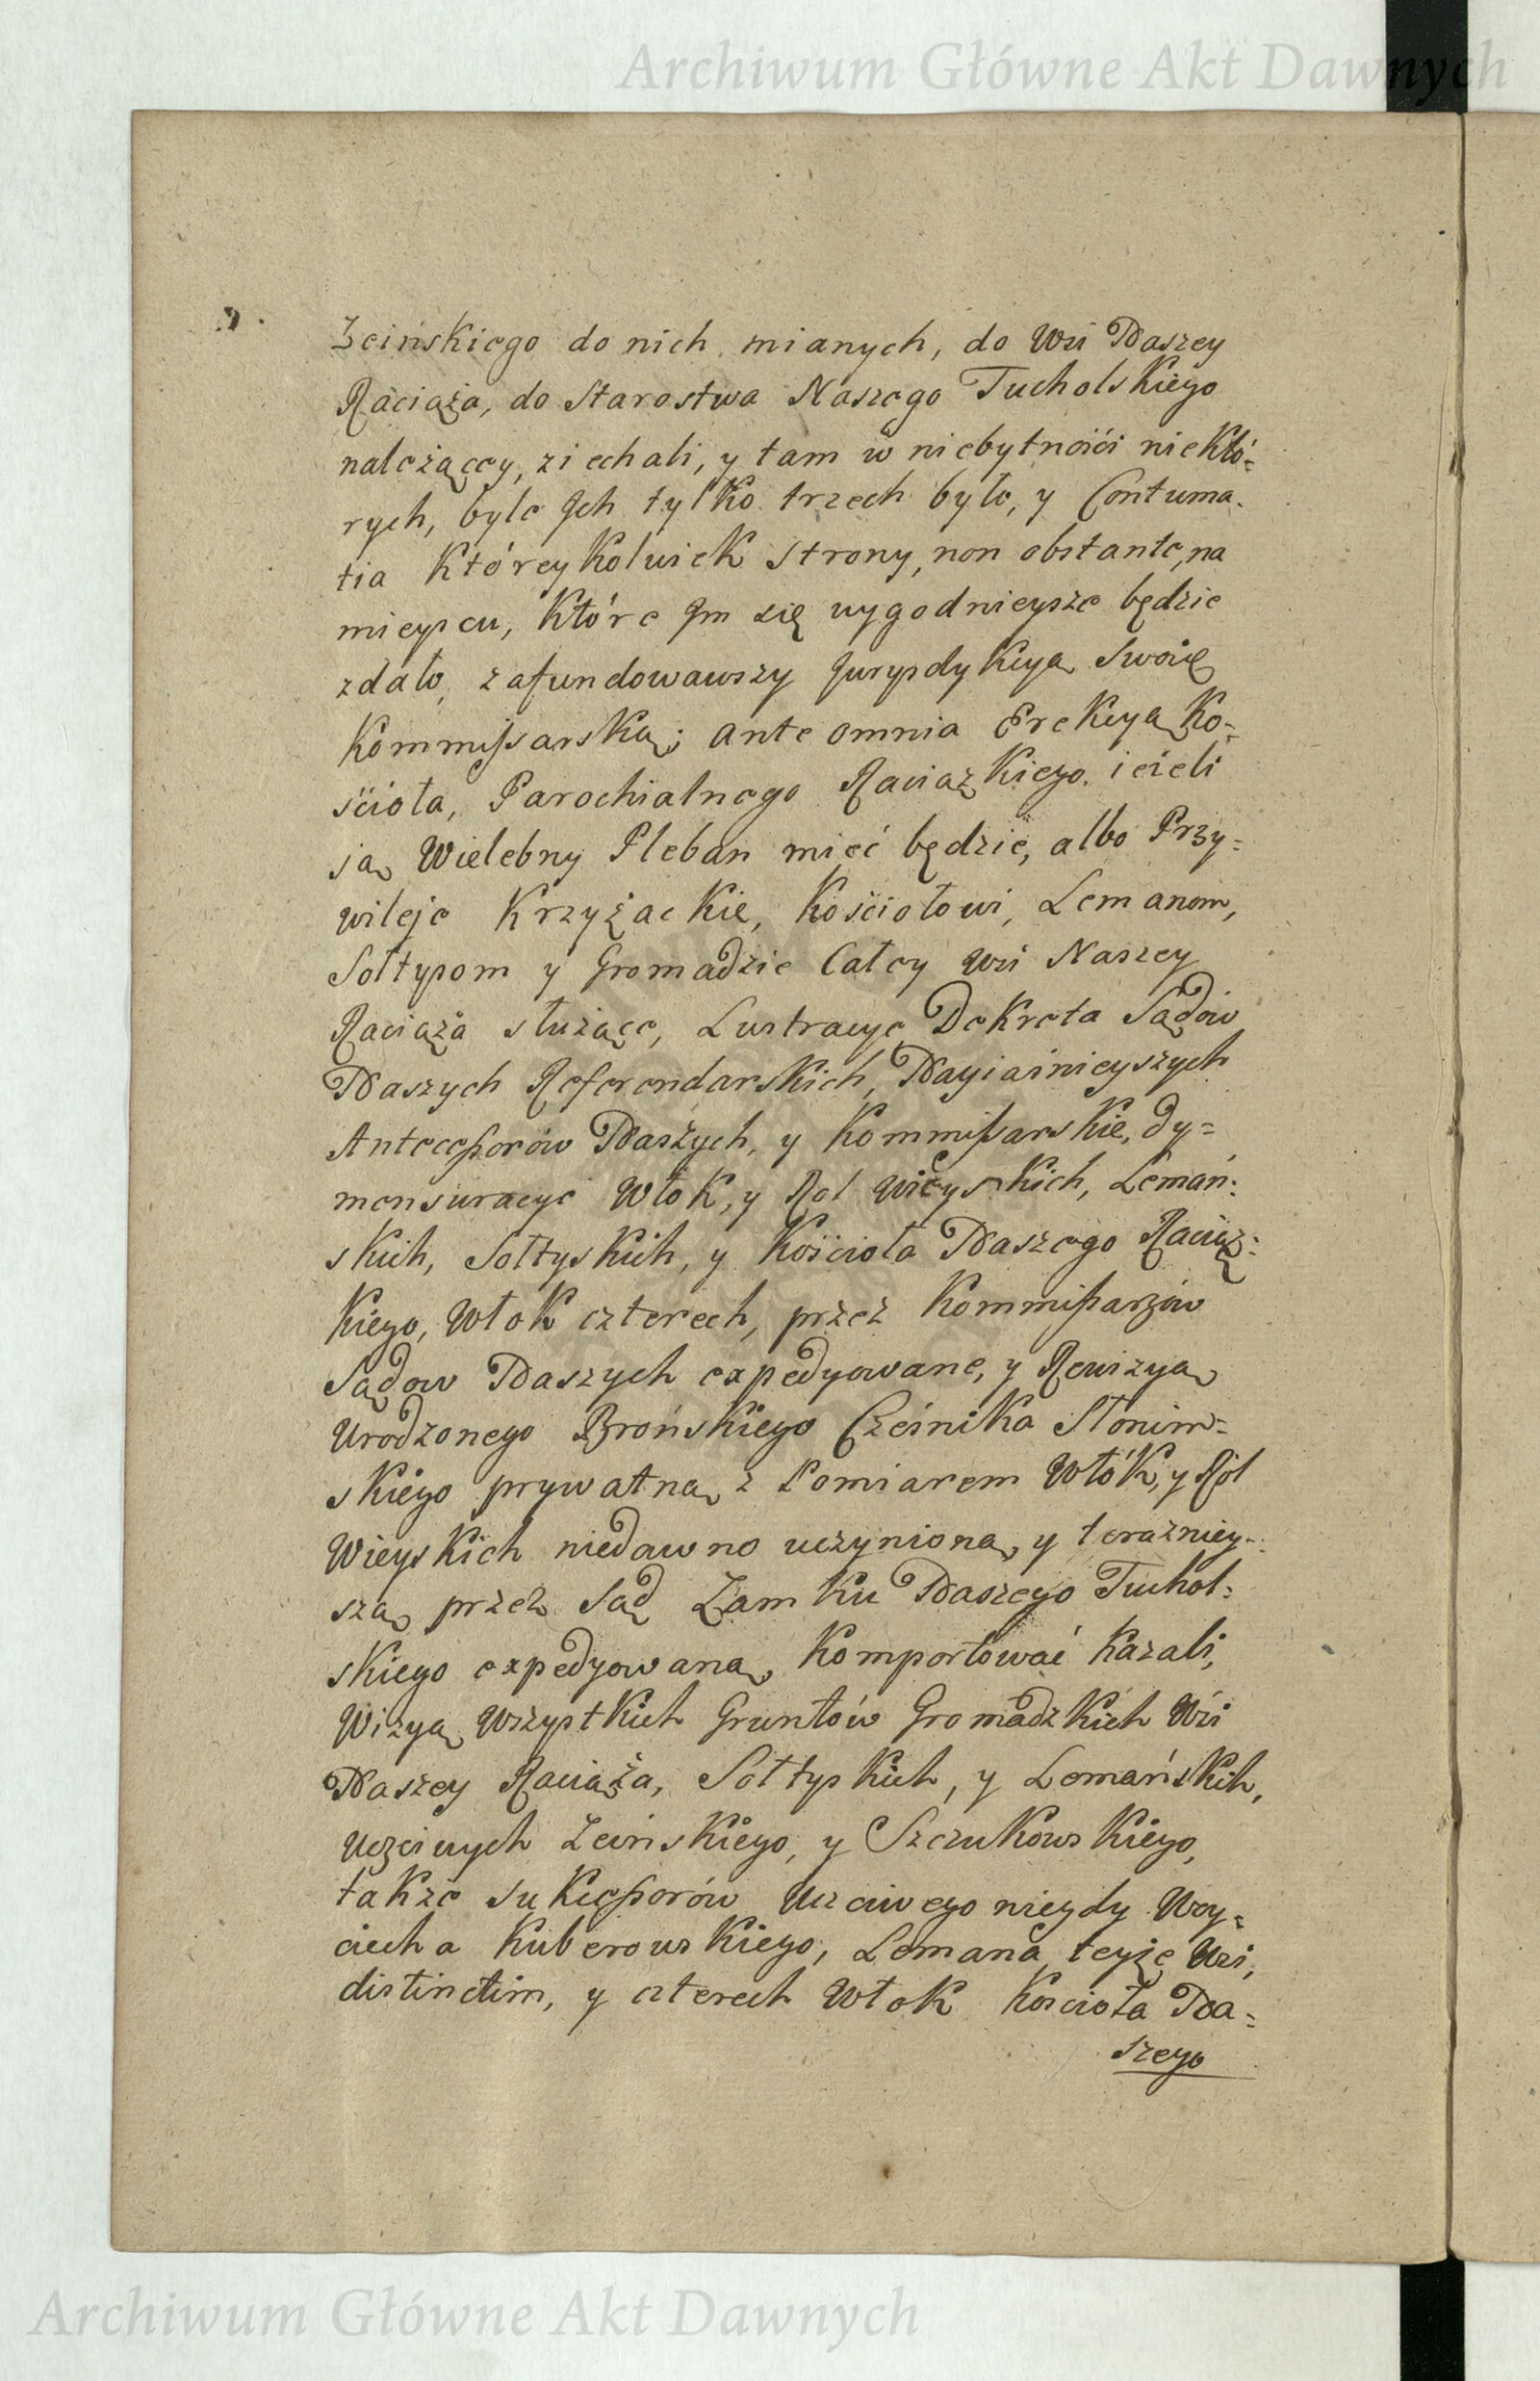 Archiwum Główne Akt Dawnych
Zcińskiego do nich mianych, do Wsi Naszey
Raciąża, do Starostwa Naszego Tucholskiego
należącey, ziechali, y tam w niebytności niektó=
rych, byle Jch tylko trzech było, y Contuma=
tia któreykolwiek strony, non obstante, na
mieyscu, które Jm się wygodnieysze będzie
zdało, zafundowawszy Juryzdykcyą Swoię
Kommissarską; ante omnia Erekcyą Ko=
ścioła, Parochialnego Raciązkiego ieżeli
ją Wielebny Pleban mieć będzie, albo Przy=
wileje Krzyżackie, Kościołowi, Lemanom,
Sołtysom y Gromadzie Całey Wsi Naszey
Raciąża służące, Lustracye, Dekreta Sądów
Naszych Referendarskich, Nayiaśnieyszych
Antecessorów Naszych, y Kommissarskie, dy=
mensuracye Włok, y Rol Wieyskich, Lemań=
skich, Sołtyskich, y Kościoła Naszego Raciąz=
kiego, Włok czterech, przez Kommissarzów
Sądow Naszych expedyowane, y Rewizyą
Urodzonego Brońskiego Cześnika Słonim=
skiego prywatną z Pomiarem Włók, y Ról
Wieyskich niedawno uczynioną, y teraźniey=
szą przez Sąd Zamku Naszego Tuchol=
skiego expedyowaną, Komportować kazali,
Wizyą Wszystkich Gruntów Gromadzkich Wsi
Naszey Raciąża, Sołtyskich, y Lemańskich,
Uczciwych Zcińskiego, y Szczukowskiego,
także Sukcessorów Uczciwego niegdy Woy=
ciecha Kuberowskiego, Lemana teyże Wsi,
distinctim, y czterech Włok Kościoła Na=
szego
Archiwum Główne Akt Dawnych